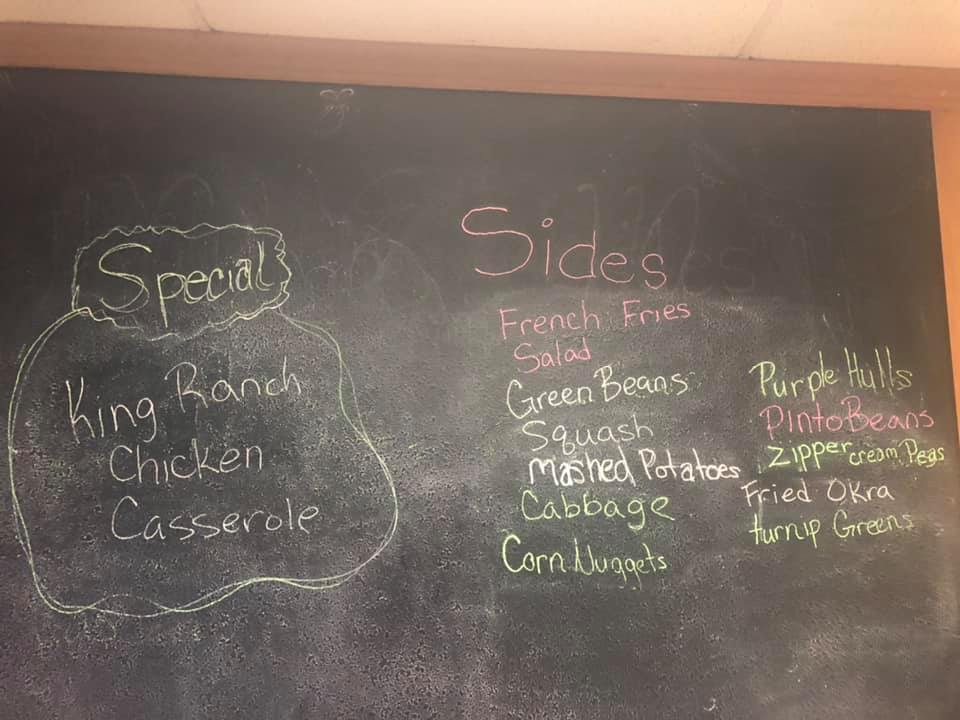 Special
King Ranch
Chicken
Casserole
Sides
French Fries
Salad
Green Beans
Squash
Mashed Potatoes
Cabbage
Corn Nuggets
Purple Hulls
Pinto Beans
Zipper cream Peas
Fried Okra
turnip Greens